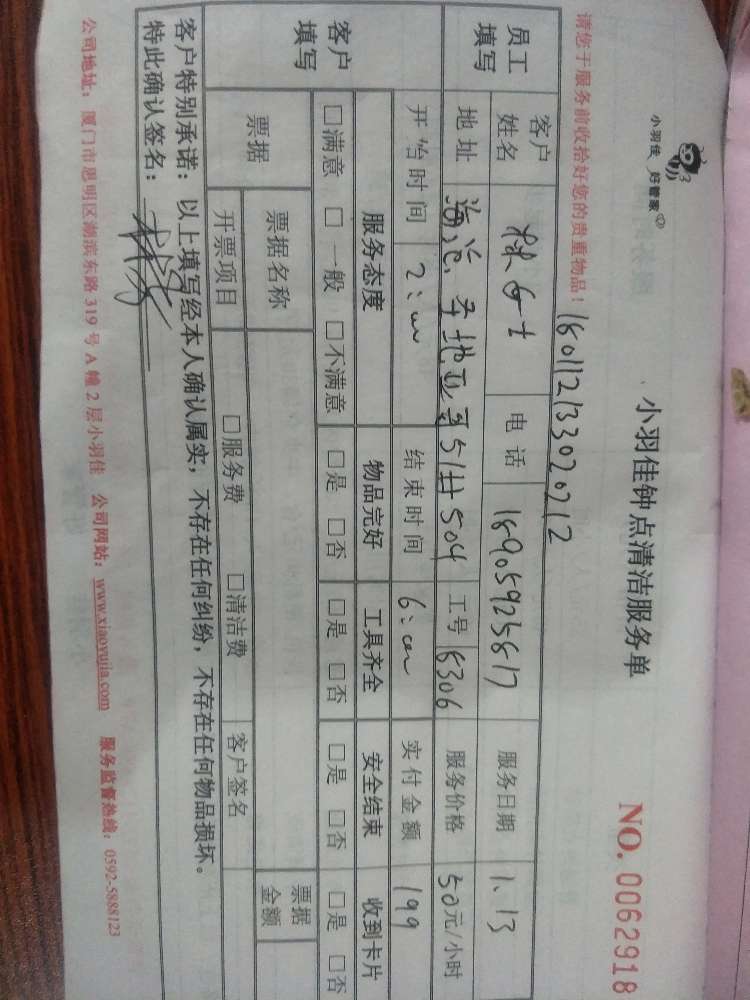 小羽佳 好管家
小羽佳钟点清洁服务单
NO. 0062918
请您于服务前收拾好您的贵重物品！
员工填写 客户姓名 林女士 电话 服务日期 1.13
地址 工号 8306 服务价格 50元/小时
开始时间 结束时间 实付金额 199
客户填写 服务态度 物品完好 工具齐全 安全结束 收到卡片
□满意 □一般 □不满意 □是 □否 □是 □否 □是 □否 □是 □否
票据 票据名称 票据金额
开票项目 □服务费 □清洁费 客户签名
客户特别承诺：以上填写经本人确认属实，不存在任何纠纷，不存在任何物品损坏。
特此确认签名：
公司地址：厦门市思明区湖滨东路319号A幢2层小羽佳 公司网站：www.xiaoyujia.com 服务监督热线：0592-5888123